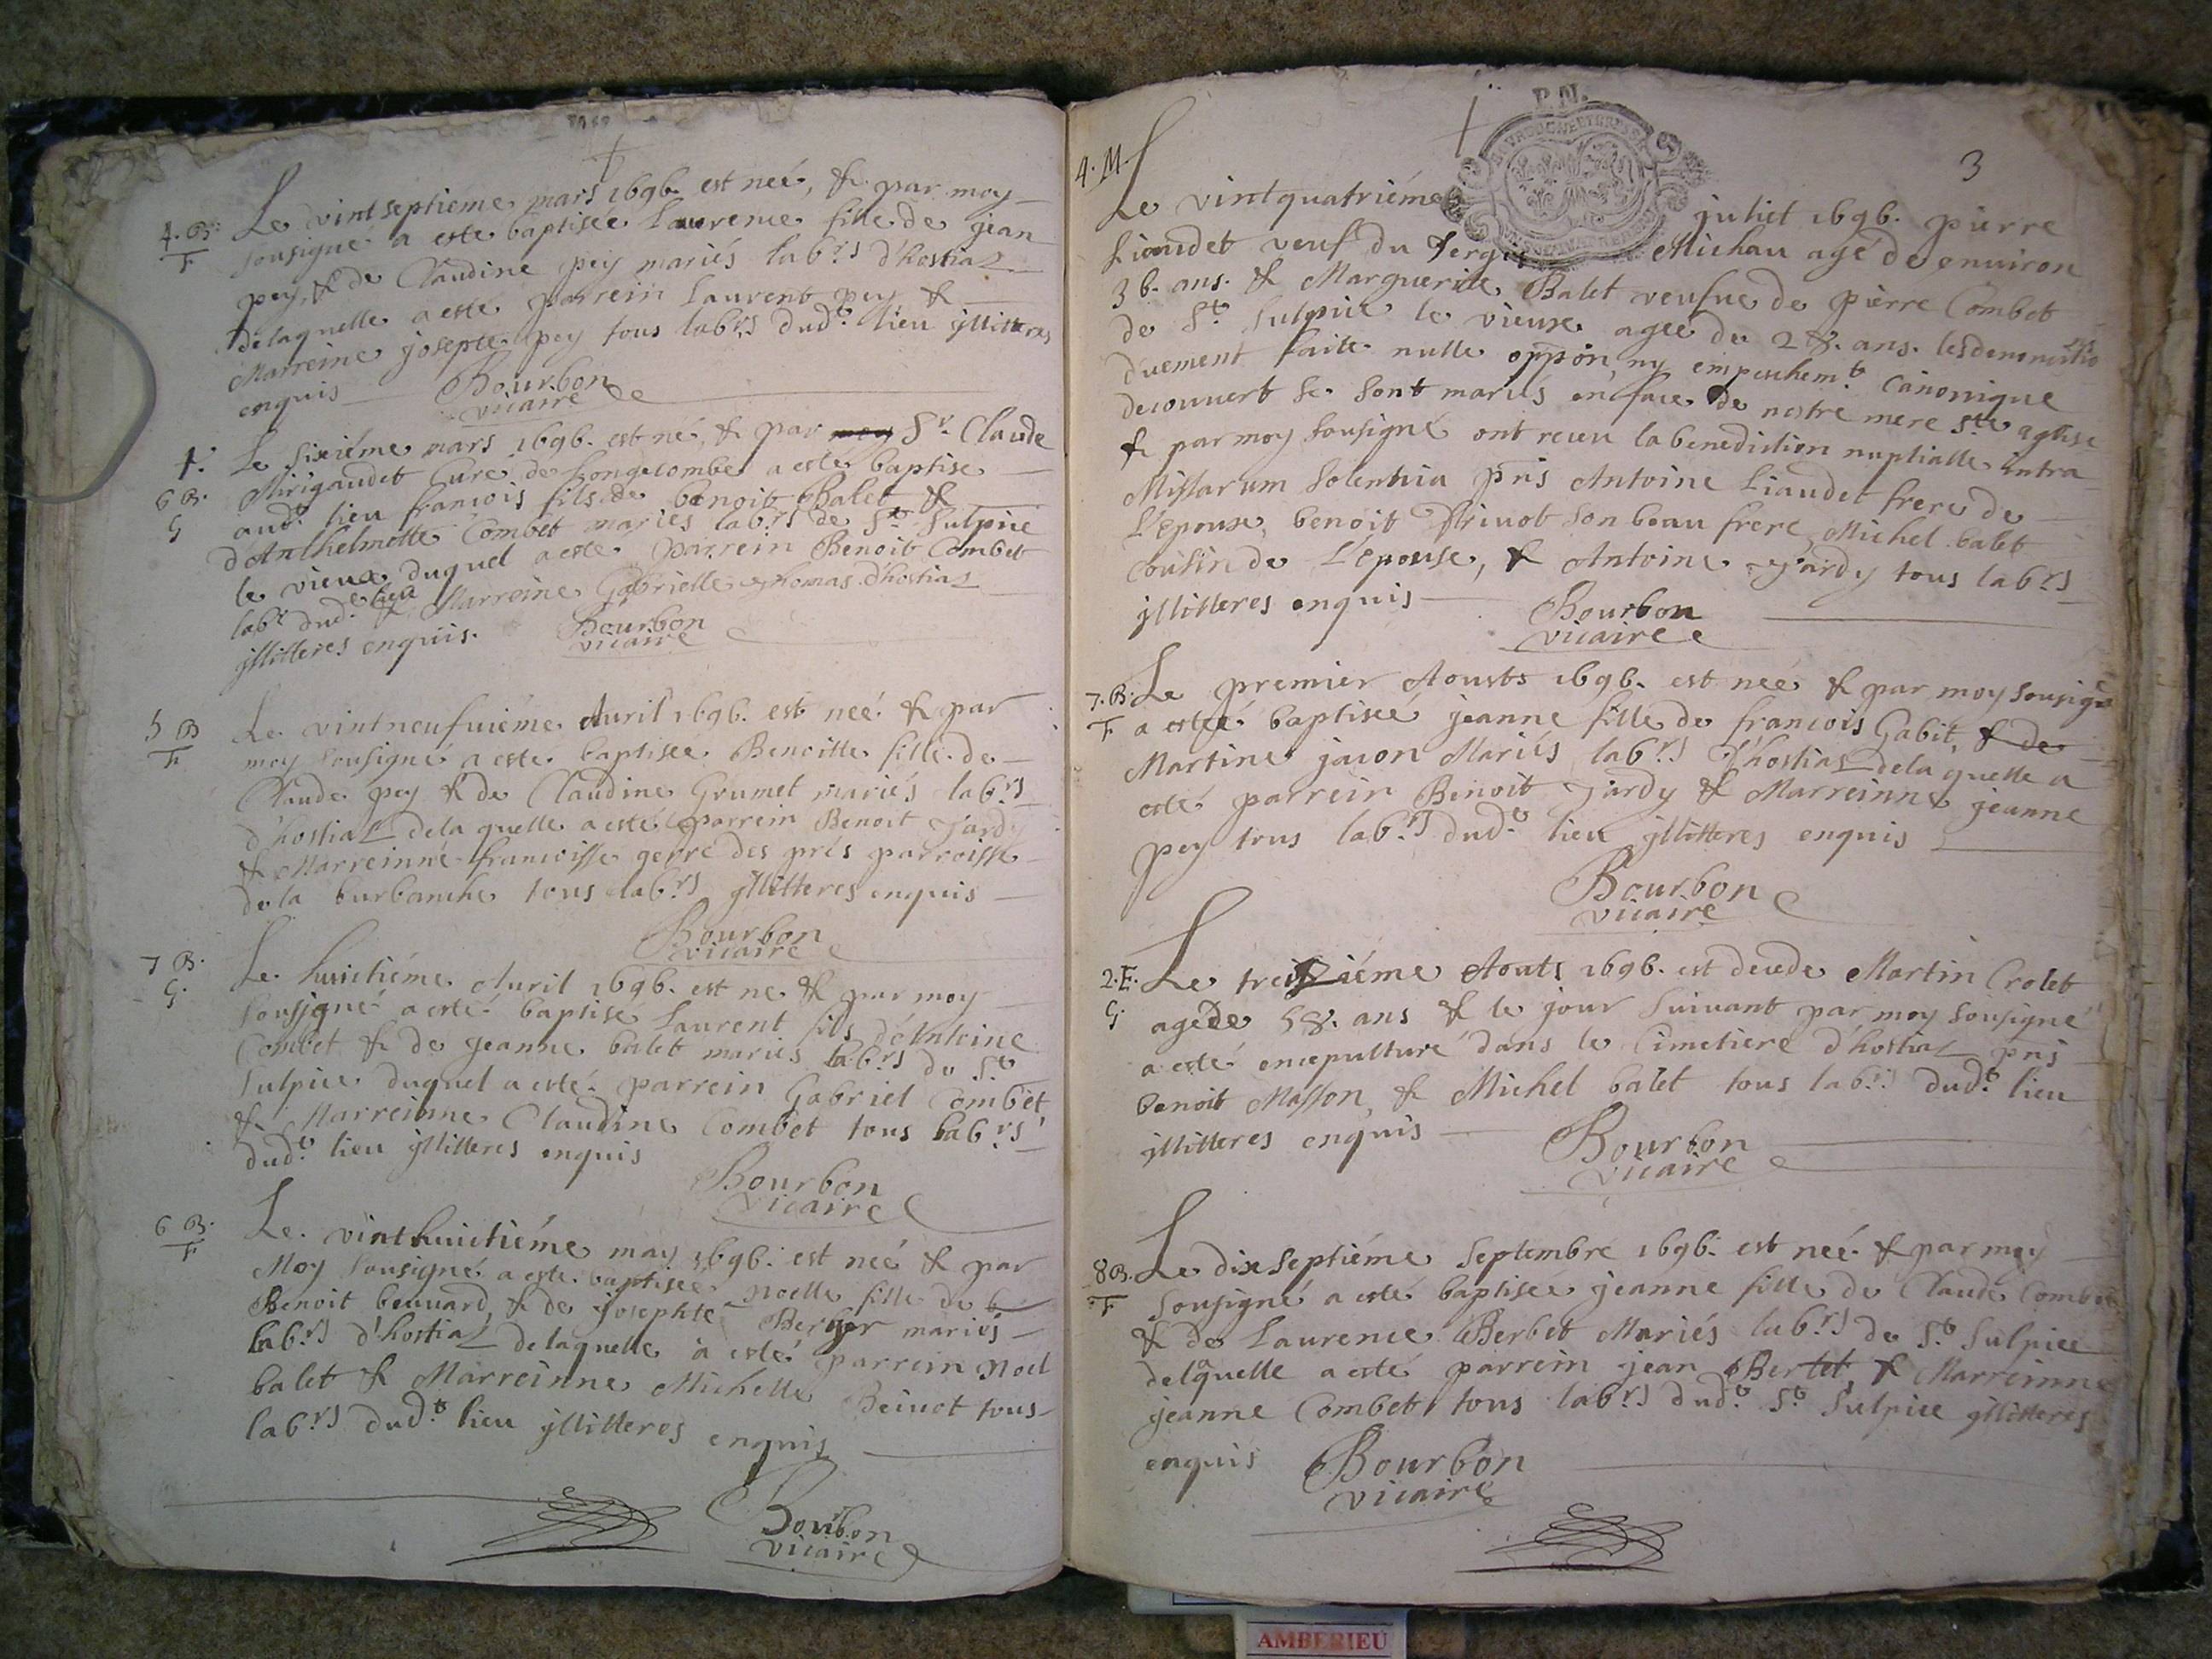 4. B.
F
Le vint septiéme mars 1696. est neé, & par moy
sousigné a esté baptisée Laurence fille de jean
pey, & de Claudine pey mariés lab.rs d'hostiaz
delaquelle a esté parrein Laurent pey &
Marreine josepte pey tous lab.rs dud.t lieu jllitteres
enquis
Bourbon
vicaire
6 B.
G
Le sixiéme mars 1696. est né, & par S.r Claude
Curé de Longecombe a esté baptise
aud.t lieu francois fils de benoit Balet &
d'Anthelmette Combet mariés lab.rs de S.t Sulpice
le vieux duquel a esté parrein Benoit Combet
lab.r dud.t lieu & Marreine Gabrielle thomas d'hostiaz
jllitteres enquis.
Bourbon
vicaire
5 B
F
Le vintneufuiéme Auril 1696. est neé & par
moy sousigné a esté baptiseé Benoitte fille de
Claude pey & de Claudine Grumet mariés lab.rs
d'hostiaz dela quelle a esté parrein Benoit jardy
& Marreinne francoisse gerre des prés parroisse
de la burbanche tous lab.rs jllitteres enquis
Bourbon
vicaire
7 B.
G.
Le huictiéme Auril 1696. est ne & par moy
sousigné a esté baptise Laurent fils d'Antoine
Combet & de jeanne balet mariés lab.rs de S.t
Sulpice duquel a esté parrein Gabriel Combet
& Marreinne Claudine Combet tous lab.rs
dud.t lieu jllitteres enquis
Bourbon
vicaire
6 B.
F
Le vinthuictiéme may 1696. est neé & par
Moy sousigné a esté baptiseé noelle fille de
Benoit beuuard, & de josephte Berger mariés
lab.rs d'hostiaz delaquelle à esté parrein noel
balet & Marreinne Michelle Beinot tous
lab.rs dud.t lieu jllitteres enquis
Bourbon
vicaire
P.N.
3
4. M
Le vintquatriéme juliet 1696. pierre
Liaudet veuf du Michau agé de enuiron
36. ans. & Marguerite Balet veufue de pierre Combet
de S.t Sulpice le vieux ageé de 28. ans. les
duement faite nulle oppôn, ny empeschem.t Canonique
decouuert se sont mariés en face de nostre mere S.te eglise
& par moy sousigné ont receu la benediction nuptialle intra
Missarum Solemnia pñs Antoine Liaudet frere de
L'Epoux, benoit Prinot son beau frere, Michel balet
Cousin de L'Epouse, & Antoine jardy tous lab.rs
jllitteres enquis
Bourbon
vicaire
7. B.
F
Le premier Aousts 1696. est neé & par moy sousigné
a esteé baptiseé jeanne fille de francois Gabit, & de
Martine jacon Mariés lab.rs d'hostiaz dela quelle a
esté parrein Benoit jardy & Marreinne jeanne
pey tous lab.rs dud.t lieu jllitteres enquis
Bourbon
vicaire
2. E.
G.
Le treiziéme Aouts 1696. est decede Martin Crolet
agé de 58. ans & le jour suiuant par moy sousigné
a esté encepulturé dans le Cimetiere d'hostiaz pñs
benoit Masson, & Michel balet tous lab.rs dud.t lieu
jllitteres enquis
Bourbon
vicaire
8 B.
F
Le dix septiéme Septembre 1696. est neé & par moy
sousigné a esté baptiseé jeanne fille de Claude Combet
& de Laurence Berbet Mariés lab.rs de S.t Sulpice
delaquelle a esté parrein jean Bertet, & Marreinne
jeanne Combet tous lab.rs dud.t S.t Sulpice jllitteres
enquis
Bourbon
vicaire
AMBERIEU